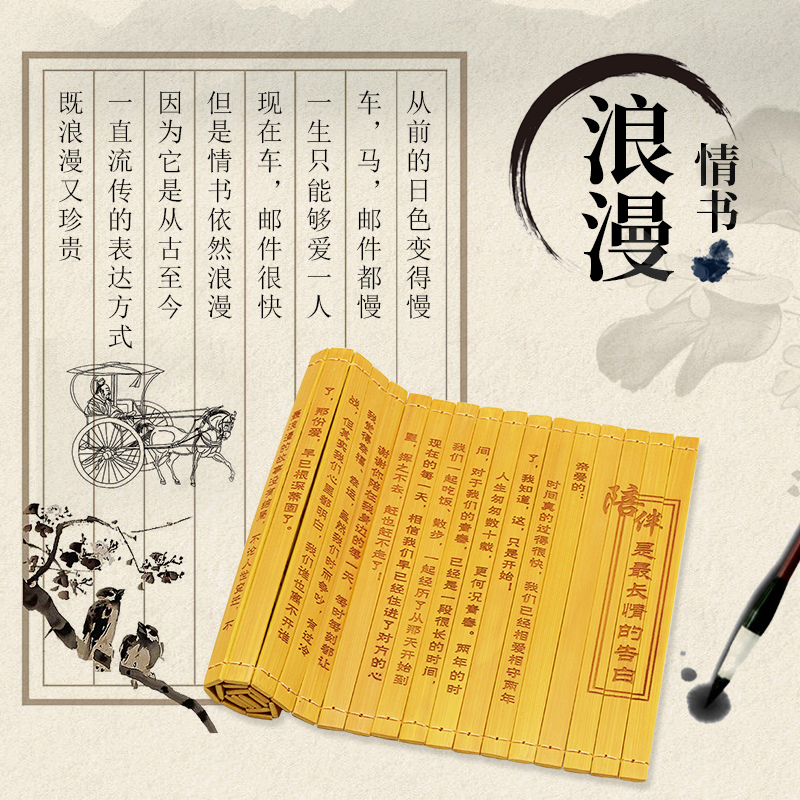 浪漫
情书
从前的日色变得慢
车，马，邮件都慢
一生只能够爱一人
现在车，邮件很快
但是情书依然浪漫
因为它是从古至今
一直流传的表达方式
既浪漫又珍贵
陪伴是最长情的告白
亲爱的：
时间真的过得很快，我们已经相爱相守两年
了，我知道，这，只是开始！
人生匆匆数十载，更何况青春。两年的时
间，对于我们的青春，已经是一段很长的时间，
我们一起吃饭，散步，一起经历了从那天开始到
现在的每一天，相信我们早已经住进了对方的心
里，挥之不去，赶也赶不走了！
谢谢你陪在我身边的每一天，每时每刻都让
我觉得幸福、幸运，虽然我们时而争吵，有过冷
战，但其实我们心里都明白，我们谁也离不开谁
了，那份爱，早已根深蒂固了。